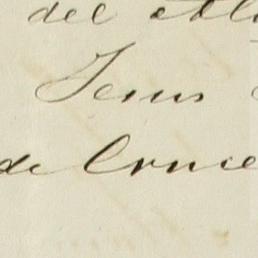 del
Jesus
de Cruce